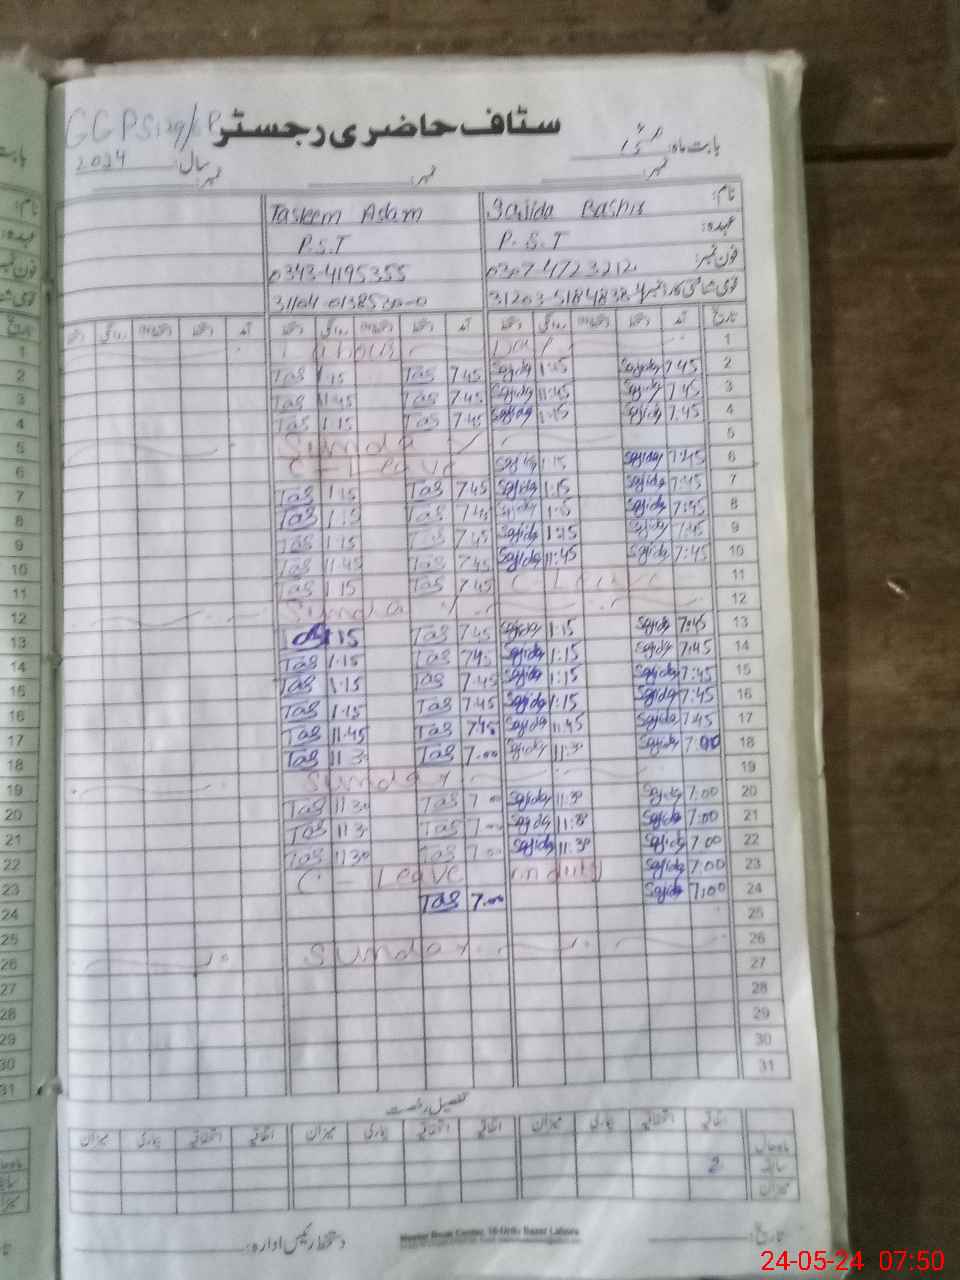 سٹاف حاضری رجسٹر
بابت ماہ: مئی
2024 سال:
نمبر: نمبر: نمبر:
نام: Sajida Bashir Tasleem Adam
عہدہ: P.S.T P.S.T
فون نمبر: 0307-4723212 0343-4195355
قومی شناختی کارڈ نمبر
تاریخ آمد دستخط دستخط روانگی دستخط آمد دستخط دستخط روانگی دستخط آمد دستخط دستخط روانگی دستخط
1
2 7:45 Sajida 1:15 Sajida 7.45 Tas 1.15 Tas
3 7:45 Sajida 11:45 Sajida 7.45 Tas 11.45 Tas
4 7:45 Sajida 1:15 Sajida 7.45 Tas 1.15 Tas
5 Sunday
6 7:45 Sajida 1:15 Sajida C-Leave
7 7:45 Sajida 1:15 Sajida 7.45 Tas 1.15 Tas
8 7:45 Sajida 1:15 Sajida 7.45 Tas 1.15 Tas
9 7:45 Sajida 1:15 Sajida 7.45 Tas 1.15 Tas
10 7:45 Sajida 11:45 Sajida 7.45 Tas 11.45 Tas
11 C-Leave 7.45 Tas 1.15 Tas
12 Sunday
13 7:45 Sajida 1:15 Sajida 7.45 Tas 1.15
14 7:45 Sajida 1:15 Sajida 7.45 Tas 1.15 Tas
15 7:45 Sajida 1:15 Sajida 7.45 Tas 1.15 Tas
16 7:45 Sajida 1:15 Sajida 7.45 Tas 1.15 Tas
17 7:45 Sajida 11:45 Sajida 7.45 Tas 11.45 Tas
18 7:00 Sajida 11:30 Sajida 7.00 Tas 11.30 Tas
19 Sunday
20 7:00 Sajida 11:30 Sajida 7.00 Tas 11.30 Tas
21 7:00 Sajida 11:30 Sajida 7.00 Tas 11.30 Tas
22 7:00 Sajida 11:30 Sajida 7.00 Tas 11.30 Tas
23 7:00 Sajida on duty C-Leave
24 7:00 Sajida 7.00 Tas
25
26 Sunday
27
28
29
30
31
تفصیل رخصت
اتفاقیہ استحقاقیہ بیماری میزان اتفاقیہ استحقاقیہ بیماری میزان اتفاقیہ استحقاقیہ بیماری میزان
ماہ حال
سابقہ 2
میزان
تاریخ: دستخط رئیس ادارہ:
24-05-24 07:50